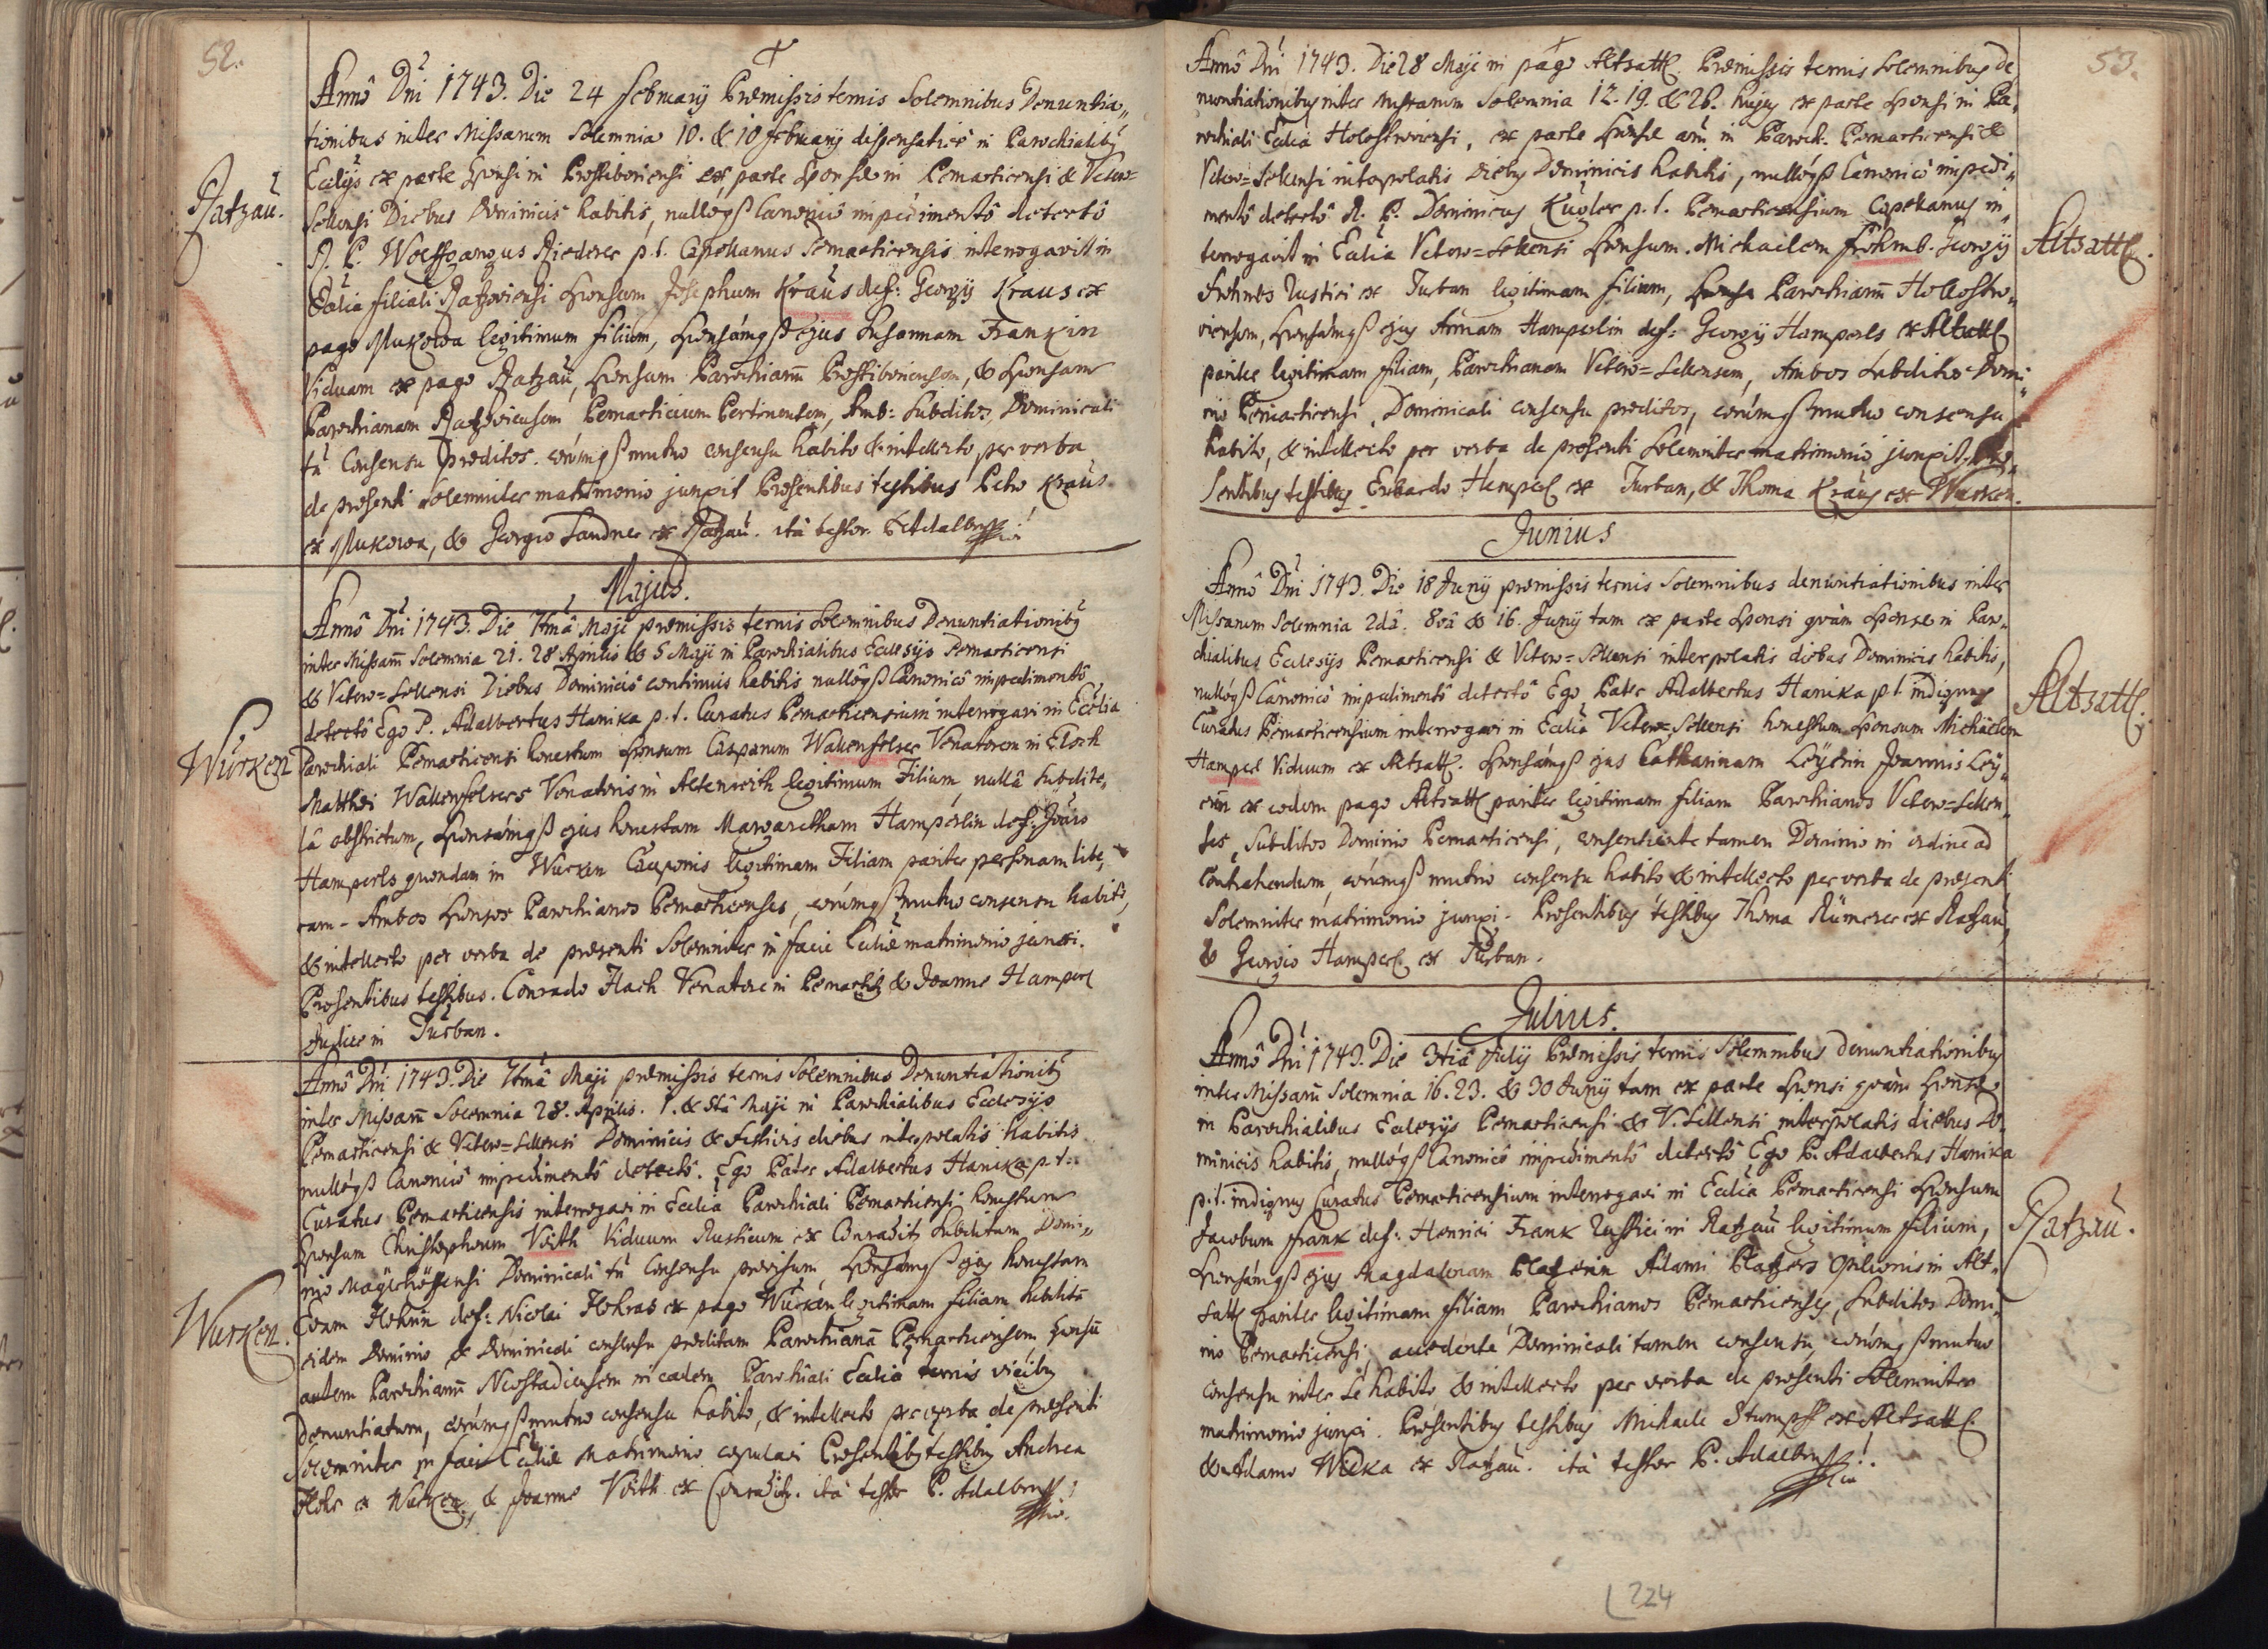 52.
Annô Dni 1743. Die 24 Februarÿ Præmissis ternis Solemnibus Denuntia„
tionibus inter Missarum Solemnia 10. & 10 Februarÿ dispensative in Parochialibq
Eccliis ex parte Sponsi in Prostiboriensi & ex parte Sponsæ in Pernarticensi & Vetero=
Sellensi Diebus Dominicis habitis, nullôqß Canonicô impedimentô detectô
R. P. Wolffgangus Riederer p. t. Capellanus Pernarticensis interrogavit in
Ecclia filiali Razoviensi Sponsum Josephum Kraus def: Georgÿ Kraus ex
pago Mukowa legitimum filium, Sponsámqß ejus Susannam Frankin
Viduam ex pago Ratzaŭ, Sponsum Parochianm Prostiboriensem, & Sponsam
Parochianam Razoviensem Pernarticium Pertinentem, Amb: Subditos, Dominicali
tñ Consensu præditos. eorúmqß mutuo consensu habito & intellecto per verba
de præsenti Solemniter matrimonio junxit Præsentibus testibus Petro Kraŭs
ex Mukowa, & Georgio Landner ex Razaŭ. ità testor P. Adalbertus
Razaŭ.
Majus.
Annô Dni 1743. Die 7tmâ Maji præmissis ternis Solemnibus Denuntiationibq
inter Missarm Solemnia 21. 28 Aprilis & 5 Maji in Parochialibus Ecclesÿs Pernarticensi
& Vetero=Sellensi Diebus Dominicis continuis habitis nullôqß Canonicô impedimentô
detectô Ego P. Adalbertus Hanika p. t. Curatus Pernarticensium interrogavi in Ecclia
Parochiali Pernarticensi honestum Sponsum Casparum Wallenfelser Venatorem in Elsch
Matthæi Wallenfelsers Venatoris in Altenreith legitimum Filium nullâ Subdite„
lâ obstrictum, Sponsámqß ejus honestam Margaretham Hamperlin def: Joăis
Hamperls quondam in Wurken Cauponis legitimam Filiam pariter personam libe„
ram. Ambos Sponsos Parochianos Pernarticenses, eorúmqß mutuo consensu habito,
& intellecto per verba de præsenti Solemniter in facie Eccliæ matrimonio junxi.
Præsentibus testibus. Conrado Hach Venatore in Pernartz & Joanne Hamperl
Judice in Turban.
Wŭrken
Annô Dni 1743. Die 7tmâ Maji præmissis ternis Solemnibus Denuntiationibq
inter Missarm Solemnia 28. Aprilis. 1. & 5tâ Maji in Parochialibus Ecclesÿs
Pernarticensi & Vetero=Sellensi Dominicis & festivis diebus interpolatis habitis
nullôqß Canonicô impedimentô detectô. Ego Pater Adalbertus Hanika p. t.
Curatus Pernarticensis interrogavi in Ecclia Parochiali Pernarticensi honestum
Sponsum Christophorum Voith Viduum Rusticum ex Conraditz Subditum Domi„
nio Mayerhöffensi Dominicali tñ Consensu provisum, Sponsámqß ejus honestam
Evam Hohrin def: Nicolai Hohras ex pago Wurken legitimam filiam Subditâ
eidem Dominio & Dominicali consensu præditam Parochianâ Pernarticensem, Sponsũ
autem Parochianm Neostadiensem in eadem Parochiali Ecclia ternis vicibq
denuntiatum, eorúmqß mutuo consensu habito, & intellecto per verba de præsenti
Solemniter in facie Eccliæ matrimonio copulavi Præsentibq testibq Andrea
Hohr ex Wurken, & Joanne Voith ex Conraditz. ità testor P. Adalbertus
Wurken.
53.
Annô Dni 1743. Die 28 Maji in pago Altsattl. Præmissis ternis Solemnibus de
nuntiationibq inter Missarum Solemnia 12. 19. & 26. hujus ex parte Sponsi in Pa„
rochiali Ecclia Holostroviensi, ex parte Sponsæ aut in Paroch. Pernarticensi &
Vetero=Sellensi interpolatis diebq Dominicis habitis, nullôqß Canonicô impedi„
mentô detectô R. P. Dominicus Kugler p. t. Pernarticensium Capellanus in„
terrogavit in Ecclia Vetero=Sellensi Sponsum. Michaelem Frohmb. Georgÿ
Frohmbs Rustici ex Turban legitimum filium, Sponsum Parochianm Hollostro„
viensem, Sponsámqß ejus Annam Hamperlin def: Georgÿ Hamperls ex Altsattl
pariter legitimam filiam, Parochianam Vetero=Sellensem, Ambos Subditos Domi„
nio Pernarticensi, Dominicali consensu præditos, eorúmqß mutuo consensu
habito, & intellecto per verba de præsenti Solemniter matrimonio junxit, Præ„
sentibus testibq Erhardo Hamperl ex Turban, & Thoma Kraus ex Wurken.
Altsattl.
Junius
Annô Dni 1743. Die 18 Junÿ præmissis ternis Solemnibus denuntiationibus inter
Missarum Solemnia 2dâ. 8vâ & 16. Junÿ tam ex parte Sponsi quàm Sponsæ in Paro„
chialibus Ecclesÿs Pernarticensi & Vetero=Sellensi interpolatis diebus Dominicis habitis,
nullôqß Canonicô impedimentô detectô Ego Pater Adalbertus Hanika p. t. indignus
Curatus Pernarticensium interrogavi in Ecclia Vetero=Sellensi honestum Sponsum Michaelem
Hamperl Viduum ex Altsattl. Sponsámqß ejus Catharinam Leÿerin Joannis Leÿ„
ern ex eodem pago Altsattl pariter legitimam filiam Parochianos Vetero=Sellen„
ses, Subditos Dominio Pernarticensi, consentiente tamen Dominio in ordine ad
Contrahendum, eorúmqß mutuo consensu habito & intellecto per verba de præsenti
Solemniter matrimonio junxi. Præsentibus testibus Thoma Rümerer ex Razaŭ,
& Georgio Hamperl ex Turban.
Altsattl.
Julius.
Annô Dni 1743. Die 3tiâ Julÿ Præmissis ternis Solemnibus denuntiationibus
inter Missarm Solemnia 16. 23. & 30 Junÿ tam ex parte Sponsi quàm Sponsæ
in Parochialibus Ecclesÿs Pernarticensi & V. Sellensi interpolatis diebus Do„
minicis habitis, nullôqß Canonicô impedimentô detectô Ego P. Adalbertus Hanika
p. t. indignus Curatus Pernarticensium interrogavi in Ecclia Pernarticensi Sponsum
Jacobum Frank def: Henrici Frank Rustici in Ratzaŭ legitimum filium,
Sponsámqß ejus Magdalenam Platzerin Adami Platzers Opilionis in Alt„
sattl pariter legitimam filiam, Parochianos Pernarticenses, Subditos Domi„
nio Pernarticensi, accedente Dominicali tamen consensu, eorúmqß mutuo
Consensu inter Se habito, & intellecto per verba de præsenti Solemniter
matrimonio junxi. Præsentibus testibus Michaele Stumpff ex Altsattl
& Adamo Wilka ex Razaŭ. ità testor P. Adalbertus
Razaŭ.
224